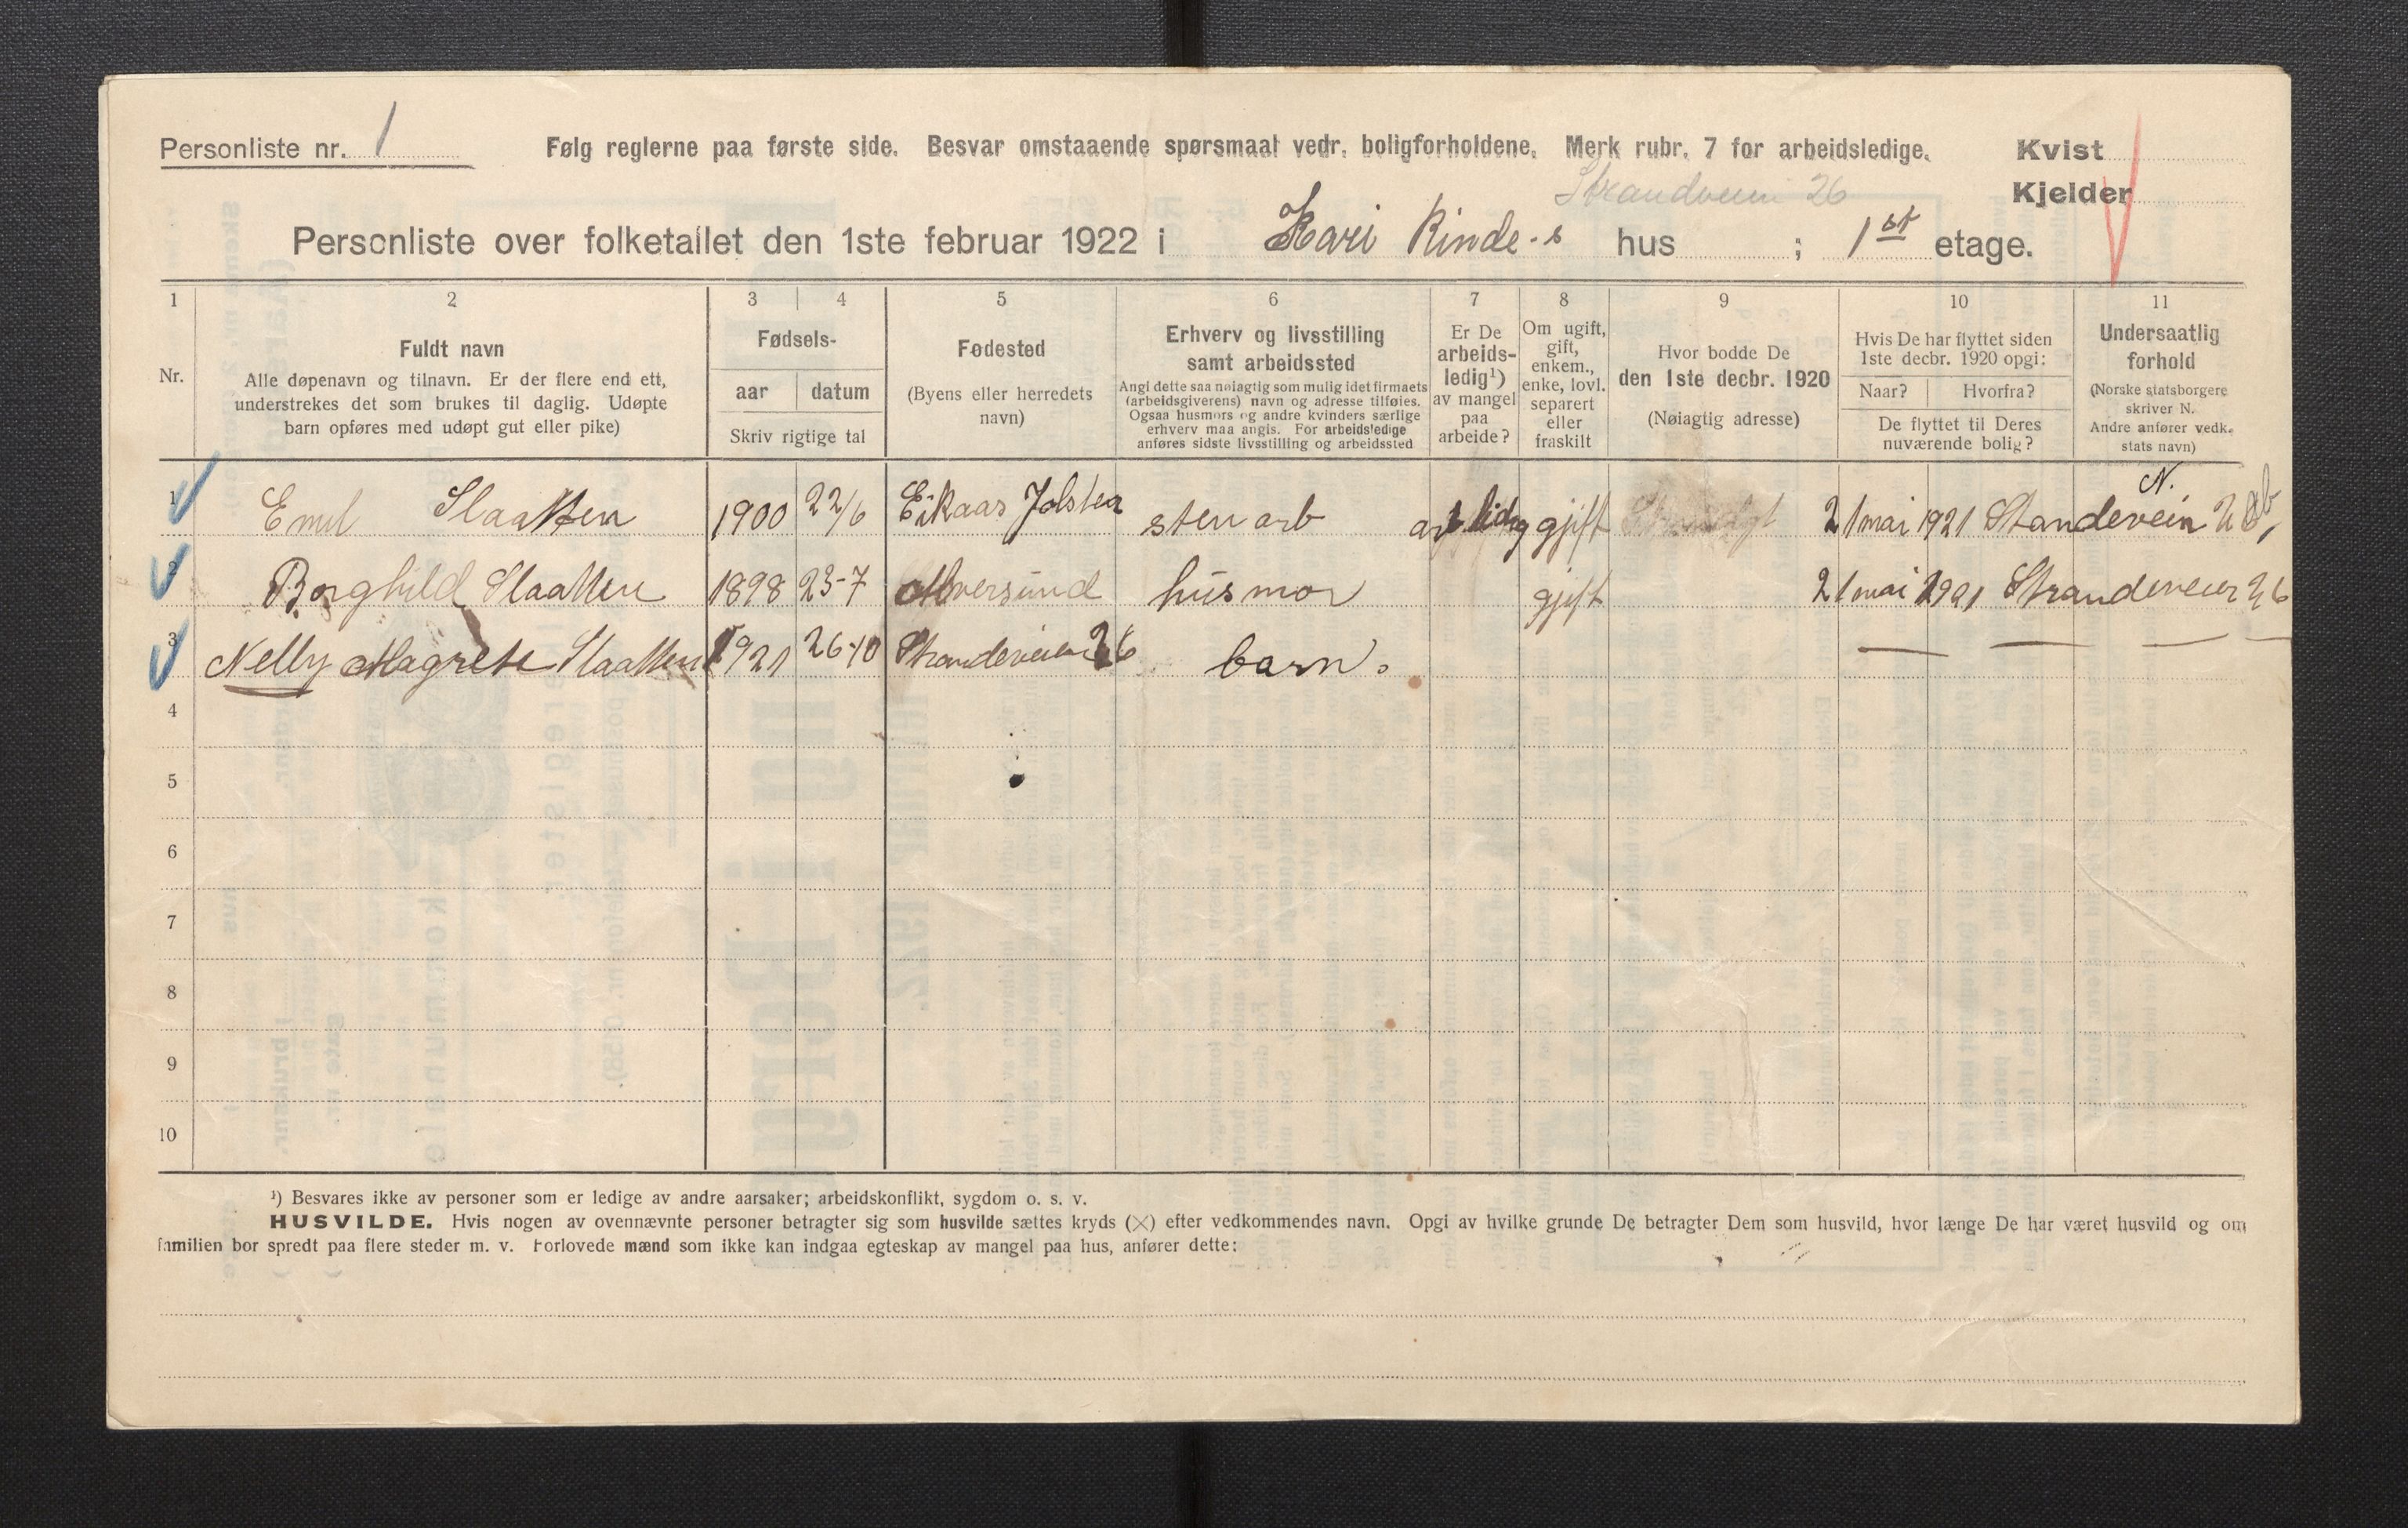 Personliste nr. 1 Følg reglerne paa første side. Besvar omstaaende spørsmaal vedr. boligforholdene. Merk rubr. 7 for arbeidsledige. Kvist
Strandveien 26 Kjelder
Personliste over folketallet den 1ste februar 1922 i Kari Rinde-s hus ; 1st etage.
1 2 3 4 5 6 7 8 9 10 11
Nr.
Fuldt navn
Alle døpenavn og tilnavn. Er der flere end ett,
understrekes det som brukes til daglig. Udøpte
barn opføres med udøpt gut eller pike)
Fødsels-
aar datum
Skriv rigtige tal
Fødested
(Byens eller herredets
navn)
Erhverv og livsstilling
samt arbeidssted
Angi dette saa nøiagtig som mulig idet firmaets
(arbeidsgiverens) navn og adresse tilføies.
Ogsaa husmors og andre kvinders særlige
erhverv maa angis. For arbeidsledige
anføres sidste livsstilling og arbeidssted
Er De
arbeids-
ledig¹)
av mangel
paa
arbeide?
Om ugift,
gift,
enkem.,
enke, lovl.
separert
eller
fraskilt
Hvor bodde De
den 1ste decbr. 1920
(Nøiagtig adresse)
Hvis De har flyttet siden
1ste decbr. 1920 opgi:
Naar? Hvorfra?
De flyttet til Deres
nuværende bolig?
Undersaatlig
forhold
(Norske statsborgere
skriver N.
Andre anfører vedk.
stats navn)
1 Emil Slaatten 1900 22/6 Eikaas Jølster sten arb arb ledig gjift 21 mai 1921 Standevein 26, N.
2 Borghild Slaatten 1898 23-7 Alversund husmor gjift 21 mai 1921 Strandeveien 26
3 Nelly Magrete Slaatten 1921 26-10 Strandeveien 26 barn. — — — —
4
5
6
7
8
9
10
¹) Besvares ikke av personer som er ledige av andre aarsaker; arbeidskonflikt, sygdom o. s. v.
HUSVILDE. Hvis nogen av ovennævnte personer betragter sig som husvilde sættes kryds (×) efter vedkommendes navn. Opgi av hvilke grunde De betragter Dem som husvild, hvor længe De har været husvild og om
familien bor spredt paa flere steder m. v. Forlovede mænd som ikke kan indgaa egteskap av mangel paa hus, anfører dette: